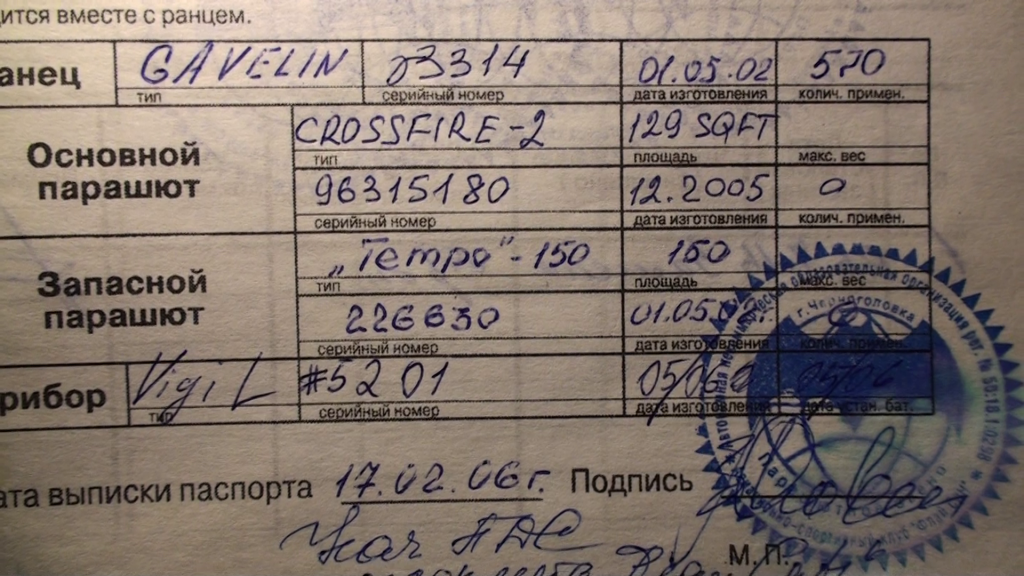 дится вместе с ранцем.
анец GAVELIN 23314 01.05.02 570
тип серийный номер дата изготовления колич. примен.
Основной парашют CROSSFIRE-2 129 SQFT
тип площадь макс. вес
96315180 12.2005 0
серийный номер дата изготовления колич. примен.
Запасной парашют „Tempo"-150 150
тип площадь макс. вес
226630 01.05.
серийный номер дата изготовления колич. примен.
рибор Vigil #5201 05/06
тип серийный номер дата изготовления дата устан. бат.
ата выписки паспорта 17.02.06г. Подпись
Нач ПДС
М.П.
г. Черноголовка